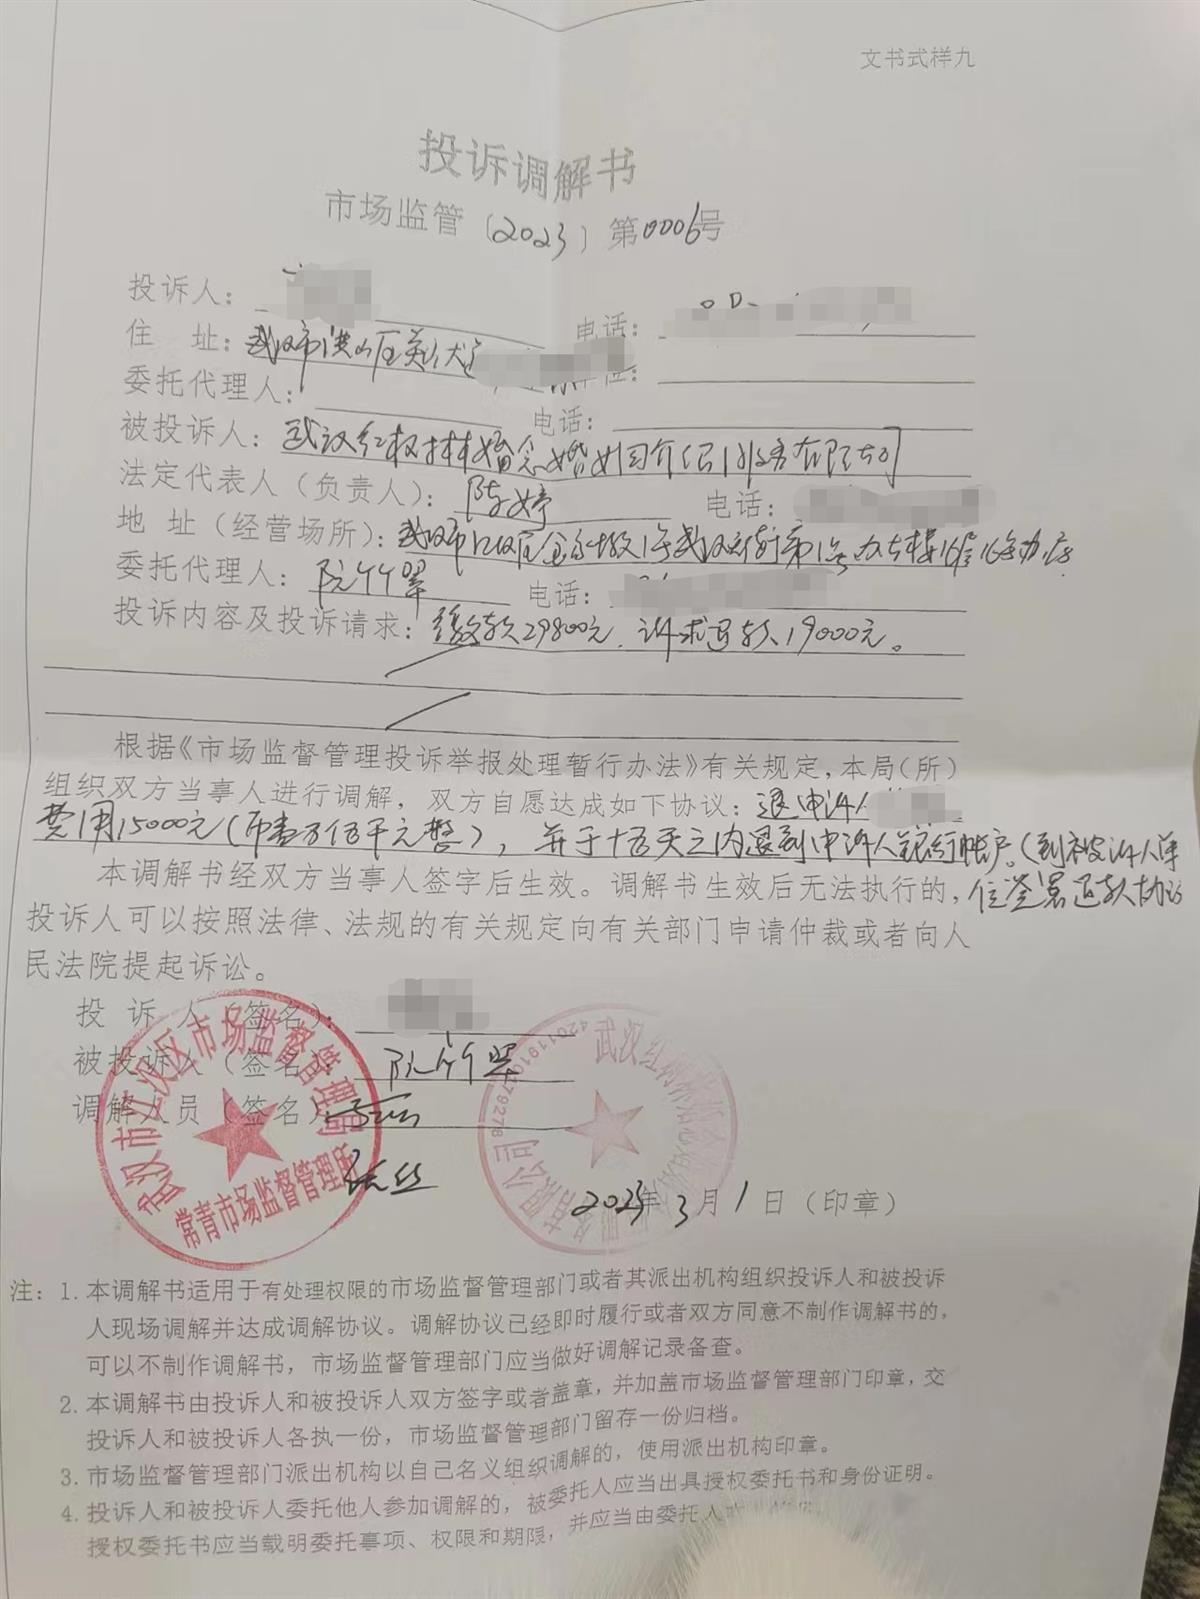 文书式样九
投诉调解书
市场监管（2023）第0006号
投诉人：
电话：
住 址：武汉市洪山区
委托代理人：
电话：
被投诉人：武汉红树林婚恋婚姻介绍服务有限公司
法定代表人（负责人）：陈婷
电话：
地 址（经营场所）：武汉市江汉区
委托代理人：阮竹翠
电话：
投诉内容及投诉请求：缴款29800元，诉求退款19000元。
根据《市场监督管理投诉举报处理暂行办法》有关规定，本局（所）
组织双方当事人进行调解，双方自愿达成如下协议：退申诉人
费用15000元（币壹万伍千元整），并于十五天之内退到申诉人银行帐户。（到被诉人单
位签署退款协议
本调解书经双方当事人签字后生效。调解书生效后无法执行的，
投诉人可以按照法律、法规的有关规定向有关部门申请仲裁或者向人
民法院提起诉讼。
投 诉 人（签名）：
被投诉人（签名）：阮竹翠
调解人员（签名）
武汉市江汉区市场监督管理局
常青市场监督管理所
2023年3月1日（印章）
注：1. 本调解书适用于有处理权限的市场监督管理部门或者其派出机构组织投诉人和被投诉
人现场调解并达成调解协议。调解协议已经即时履行或者双方同意不制作调解书的，
可以不制作调解书，市场监督管理部门应当做好调解记录备查。
2. 本调解书由投诉人和被投诉人双方签字或者盖章，并加盖市场监督管理部门印章，交
投诉人和被投诉人各执一份，市场监督管理部门留存一份归档。
3. 市场监督管理部门派出机构以自己名义组织调解的，使用派出机构印章。
4. 投诉人和被投诉人委托他人参加调解的，被委托人应当出具授权委托书和身份证明。
授权委托书应当载明委托事项、权限和期限，并应当由委托人